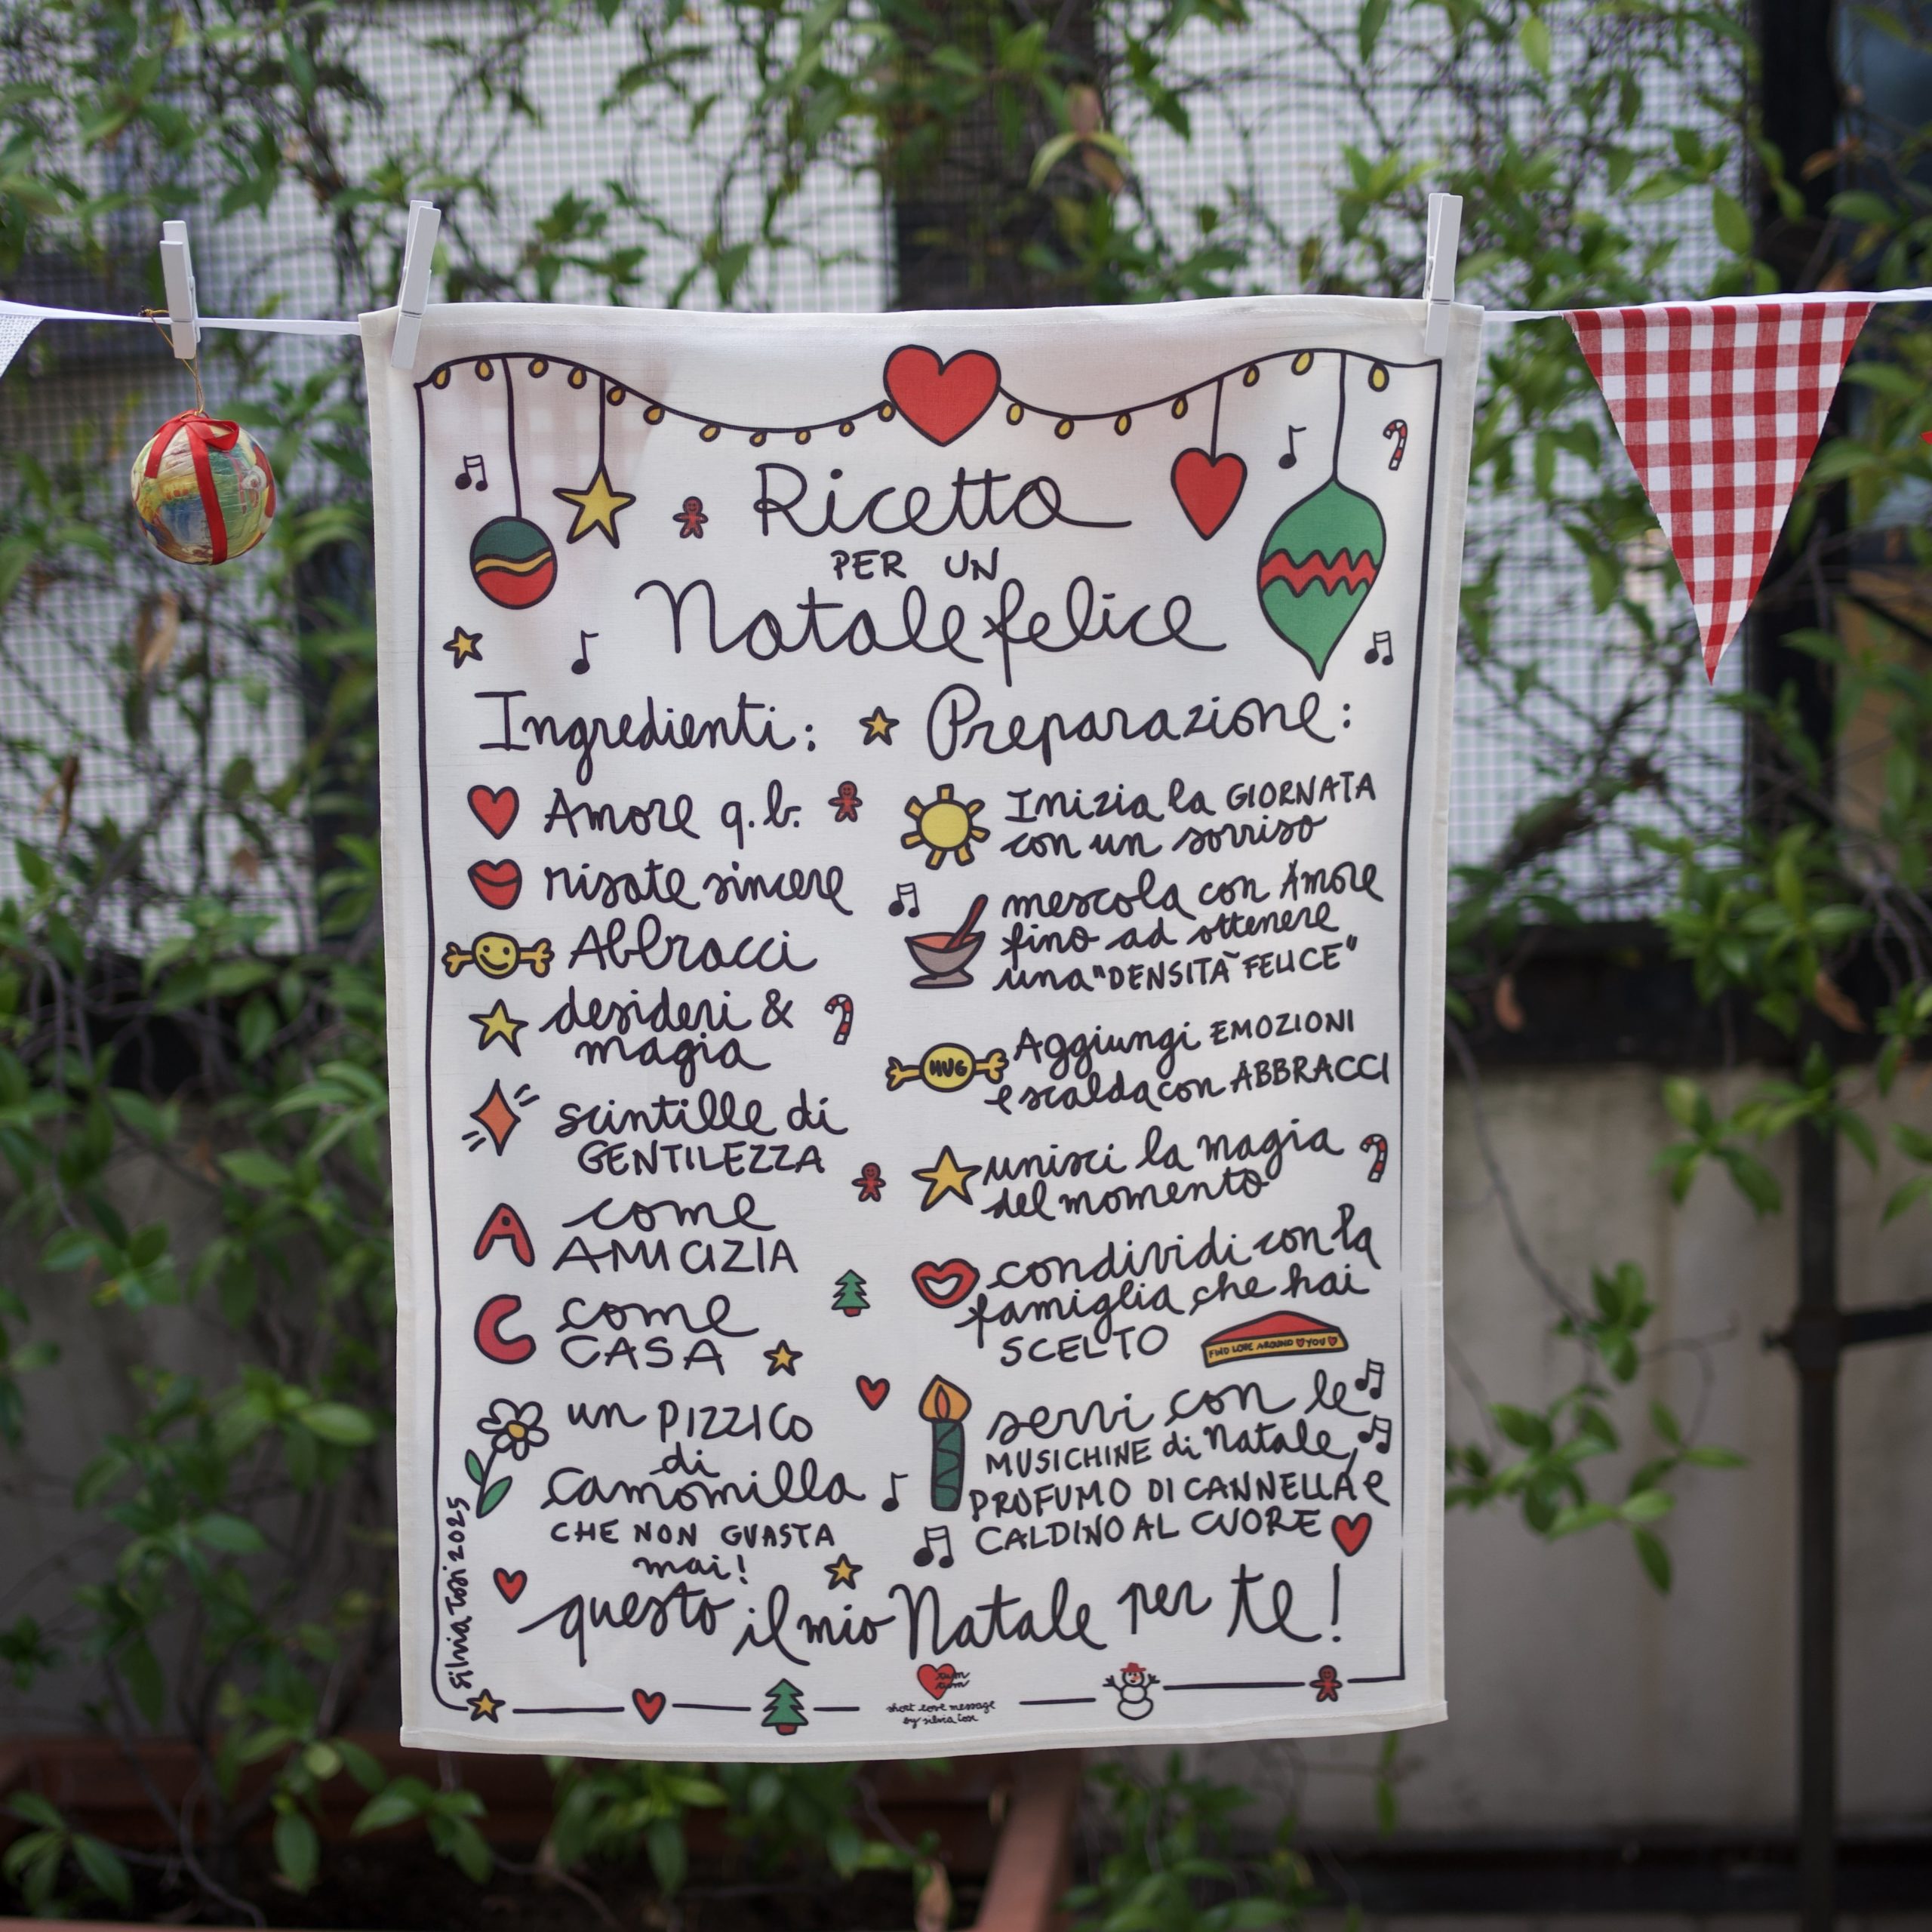 Ricetta
PER UN
Natale felice
Ingredienti:
Amore q.b.
risate sincere
Abbracci
desideri &
magia
scintille di
GENTILEZZA
A come
AMICIZIA
C come
CASA
un PIZZICO
di
camomilla
CHE NON GUASTA
mai!
Preparazione:
Inizia la GIORNATA
con un sorriso
mescola con Amore
fino ad ottenere
una "DENSITÀ FELICE"
HUG
Aggiungi EMOZIONI
e scalda con ABBRACCI
unisci la magia
del momento
condividi con la
famiglia che hai
SCELTO
FIND LOVE AROUND YOU
servi con le
MUSICHINE di Natale,
PROFUMO DI CANNELLA e
CALDINO AL CUORE
questo il mio Natale per te!
Silvia Tosi 2025
short love message
by silvia tosi